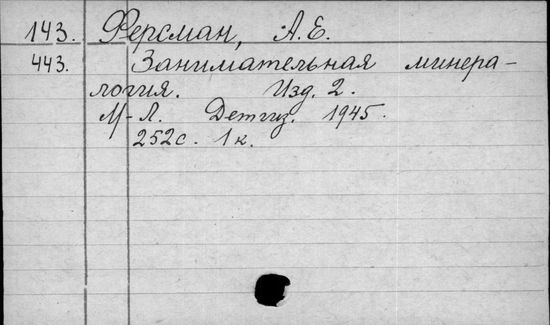 143. Ферсман, А.Е.
443. Занимательная минера-
логия. Изд. 2.
М-Л. Детгиз. 1945.
252с. 1к.